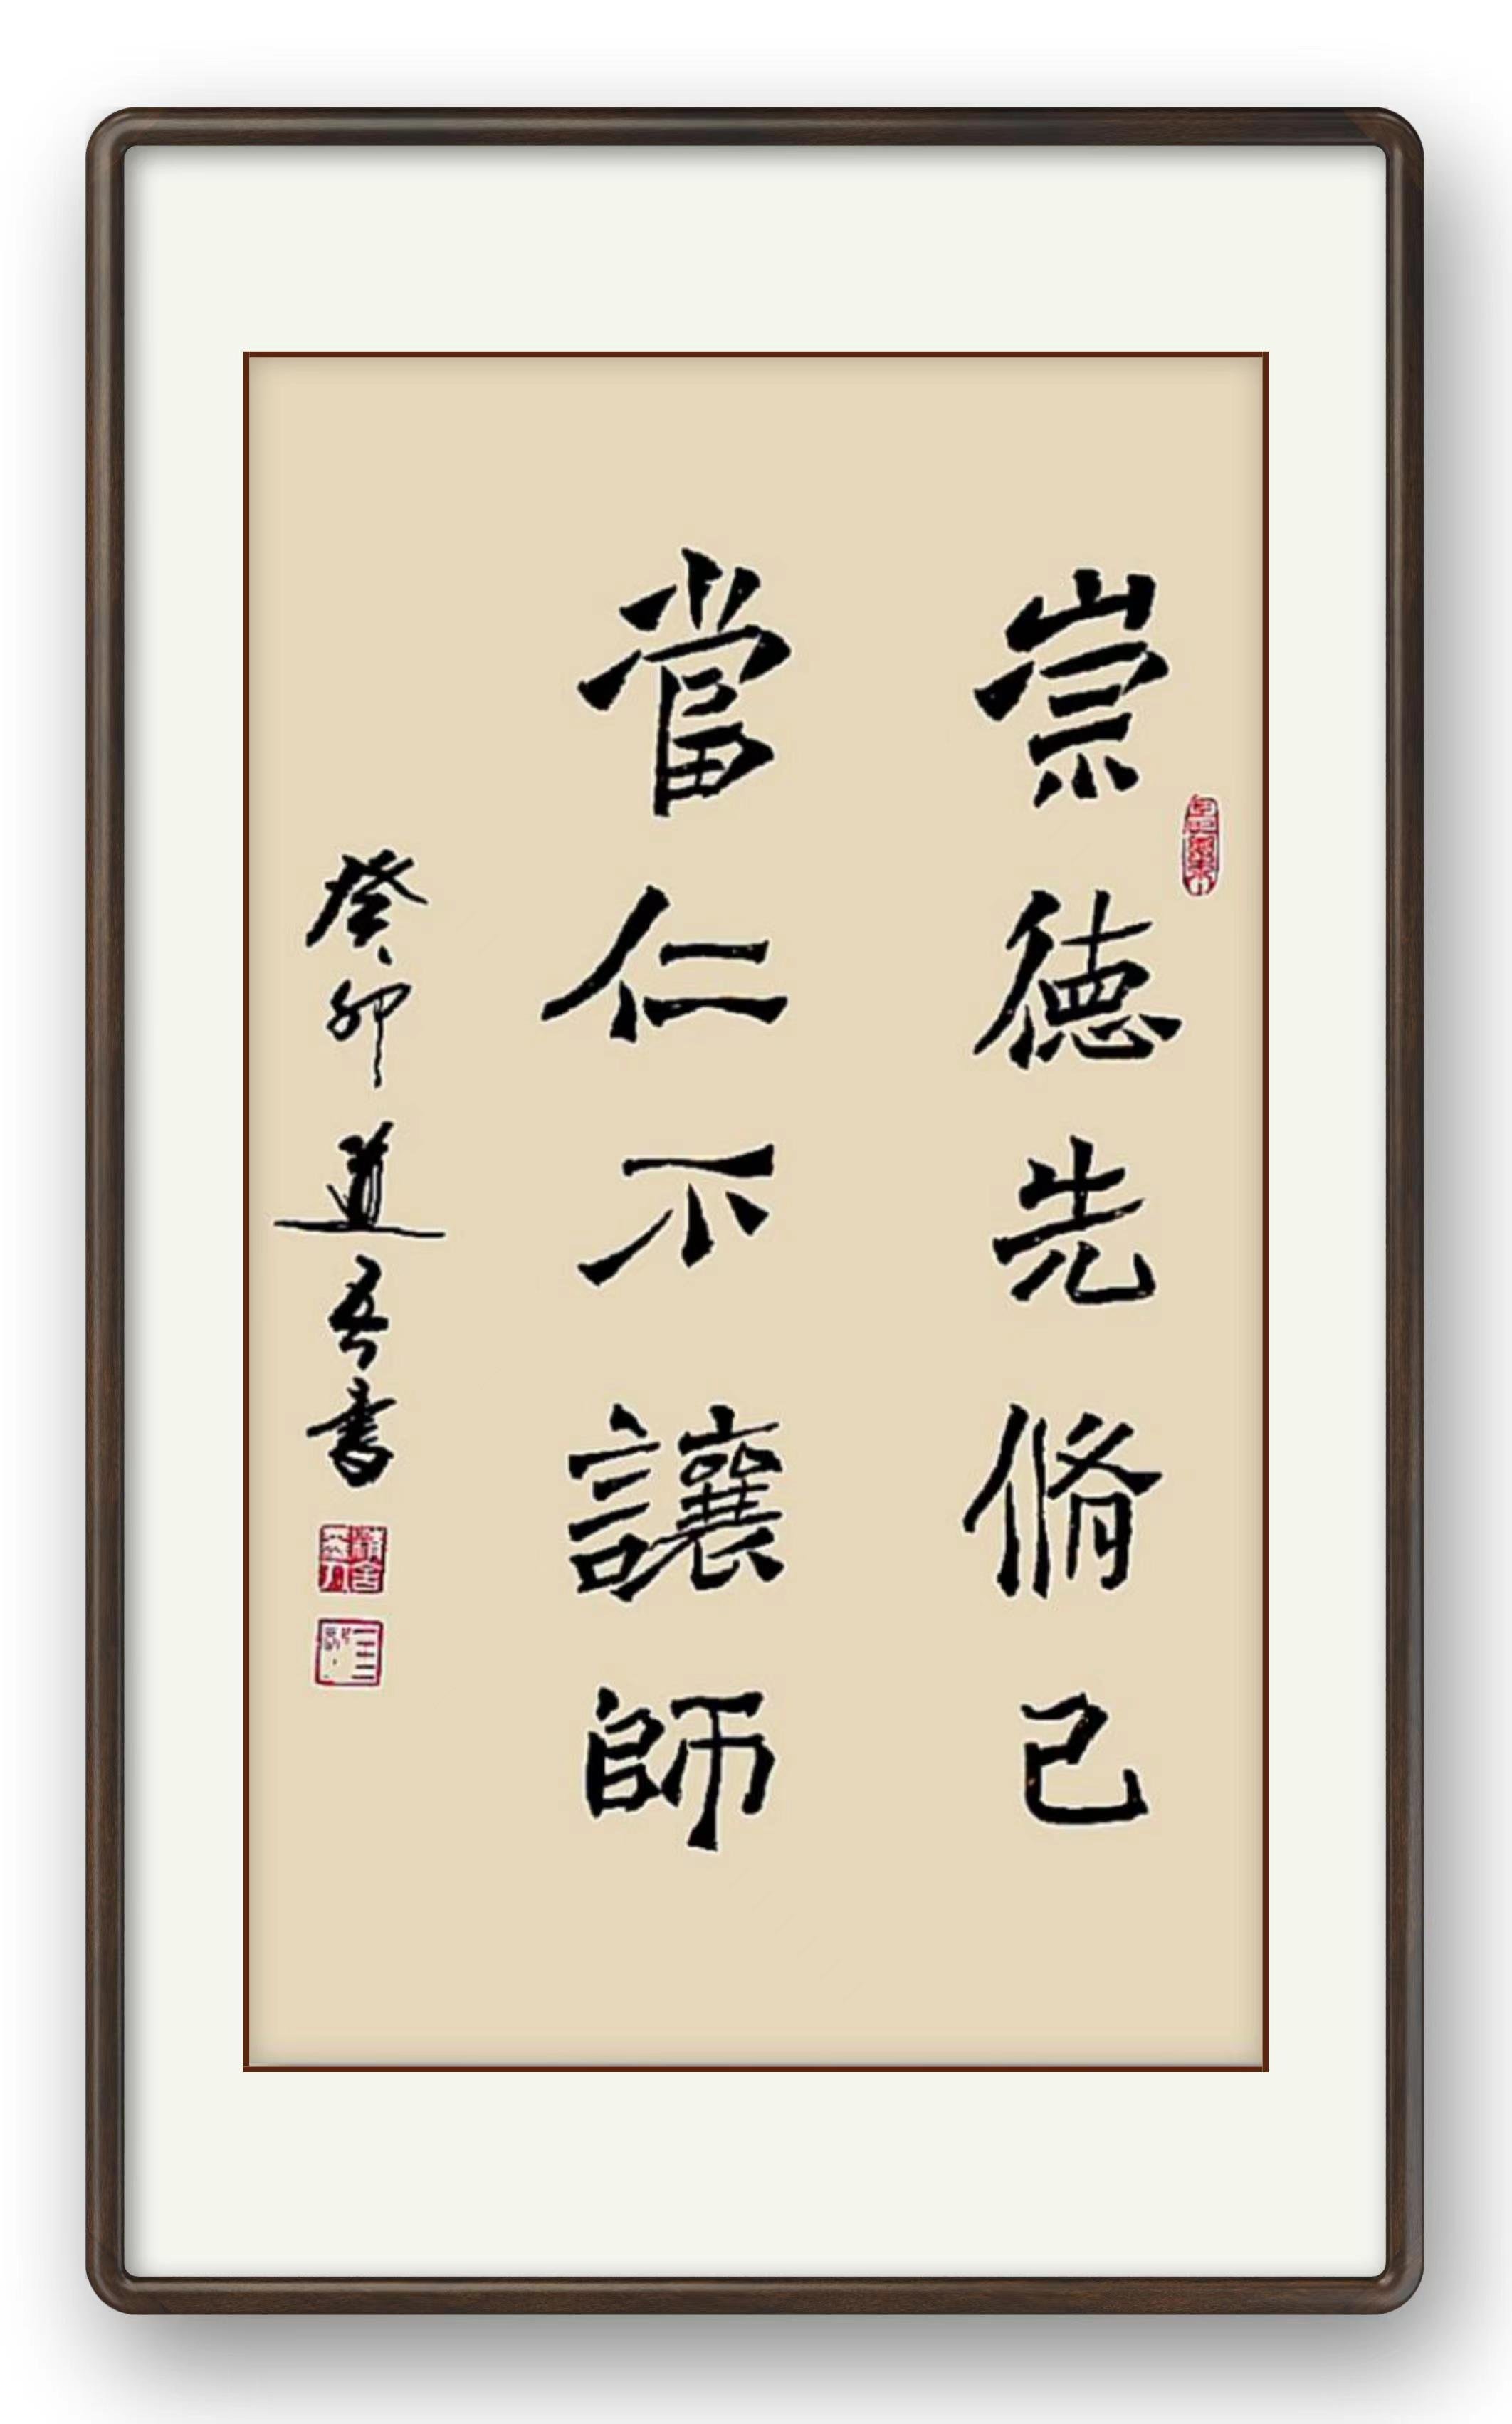 崇德先脩己
當仁不讓師
癸卯道吾書